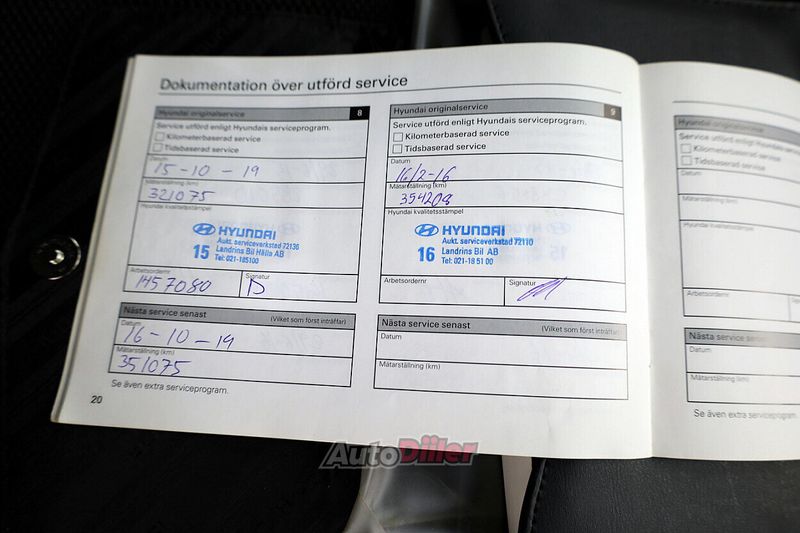 Dokumentation över utförd service
Hyundai originalservice 8
Service utförd enligt Hyundais serviceprogram.
Kilometerbaserad service
Tidsbaserad service
Datum
15-10-19
Mätarställning (km)
321075
Hyundai kvalitetsstämpel
HYUNDAI
15 Aukt. serviceverkstad 72136
Landrins Bil Hälla AB
Tel: 021-185100
Arbetsordernr
1457080
Signatur
Nästa service senast (Vilket som först inträffar)
Datum
16-10-19
Mätarställning (km)
351075
Se även extra serviceprogram.
20
Hyundai originalservice 9
Service utförd enligt Hyundais serviceprogram.
Kilometerbaserad service
Tidsbaserad service
Datum
16/2-16
Mätarställning (km)
354208
Hyundai kvalitetsstämpel
HYUNDAI
16 Aukt. serviceverkstad 72110
Landrins Bil AB
Tel: 021-18 51 00
Arbetsordernr
Signatur
Nästa service senast (Vilket som först inträffar)
Datum
Mätarställning (km)
Hyundai originalservice
Service utförd enligt Hyundais
Kilometerbaserad service
Tidsbaserad service
Datum
Mätarställning (km)
Hyundai kvalitetsstämpel
Arbetsordernr
Nästa service senast
Datum
Mätarställning (km)
Se även extra serviceprogram.
AutoDiiler